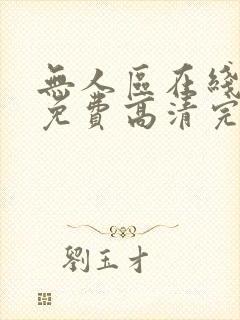 無人區在綫
免費高清完
劉玉才